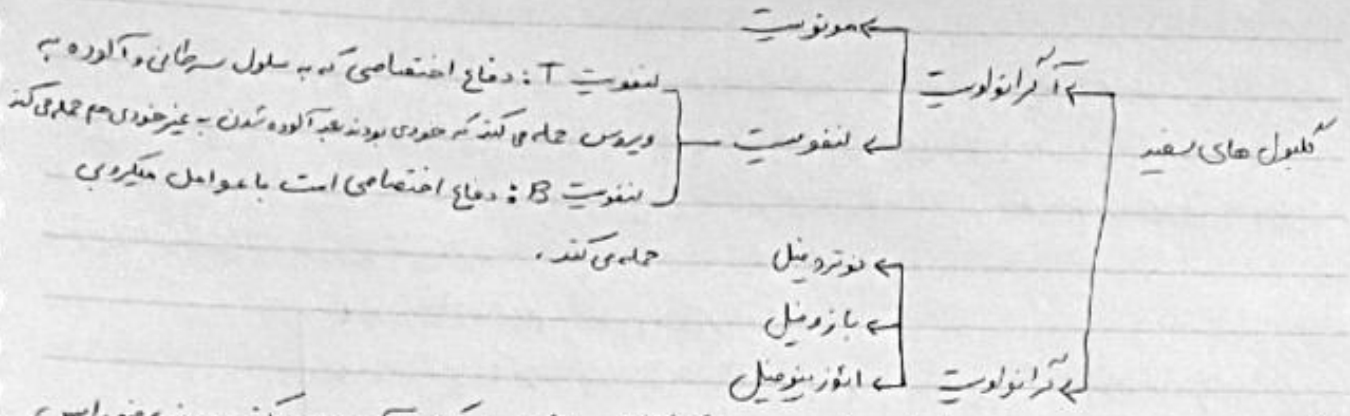 گلبول های سفید
آگرانولوسیت
مونوسیت
لنفوسیت
لنفوسیت T : دفاع اختصاصی که به سلول سرطانی و آلوده به
ویروس حمله می کند که خودی بودند بعد آلوده شدن به غیر خودی هم حمله می کند
لنفوسیت B : دفاع اختصاصی است با عوامل میکروبی
حمله می کند .
گرانولوسیت
نوتروفیل
بازوفیل
ائوزینوفیل